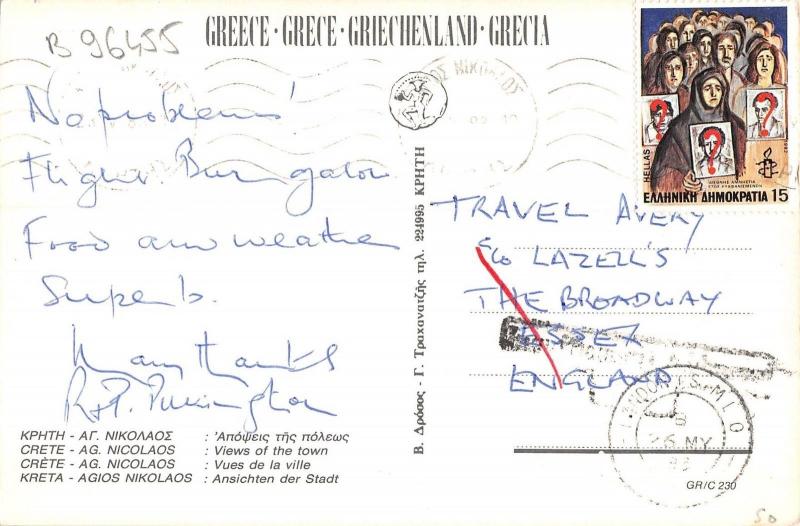 B 96455
GREECE · GRECE · GRIECHENLAND · GRECIA
ΟΣ ΝΙΚΟΛΑΟΣ
No problems!
Flight
Food and weather
Superb.
Many thanks
R & P.
ΚΡΗΤΗ - ΑΓ. ΝΙΚΟΛΑΟΣ : Ἀπόψεις τῆς πόλεως
CRETE - AG. NICOLAOS : Views of the town
CRÈTE - AG. NICOLAOS : Vues de la ville
KRETA - AGIOS NIKOLAOS : Ansichten der Stadt
Β. Δρόσος - Γ. Τραχανατζής τηλ. 234995 ΚΡΗΤΗ
HELLAS
ΔΙΕΘΝΗΣ ΑΜΝΗΣΤΙΑ
ΕΤΟΣ ΕΞΑΦΑΝΙΣΜΕΝΩΝ
1982
ΕΛΛΗΝΙΚΗ ΔΗΜΟΚΡΑΤΙΑ 15
TRAVEL AVERY
c/o LAZELL'S
THE BROADWAY
ESSEX
ENGLAND
26 MY
GR/C 230
50